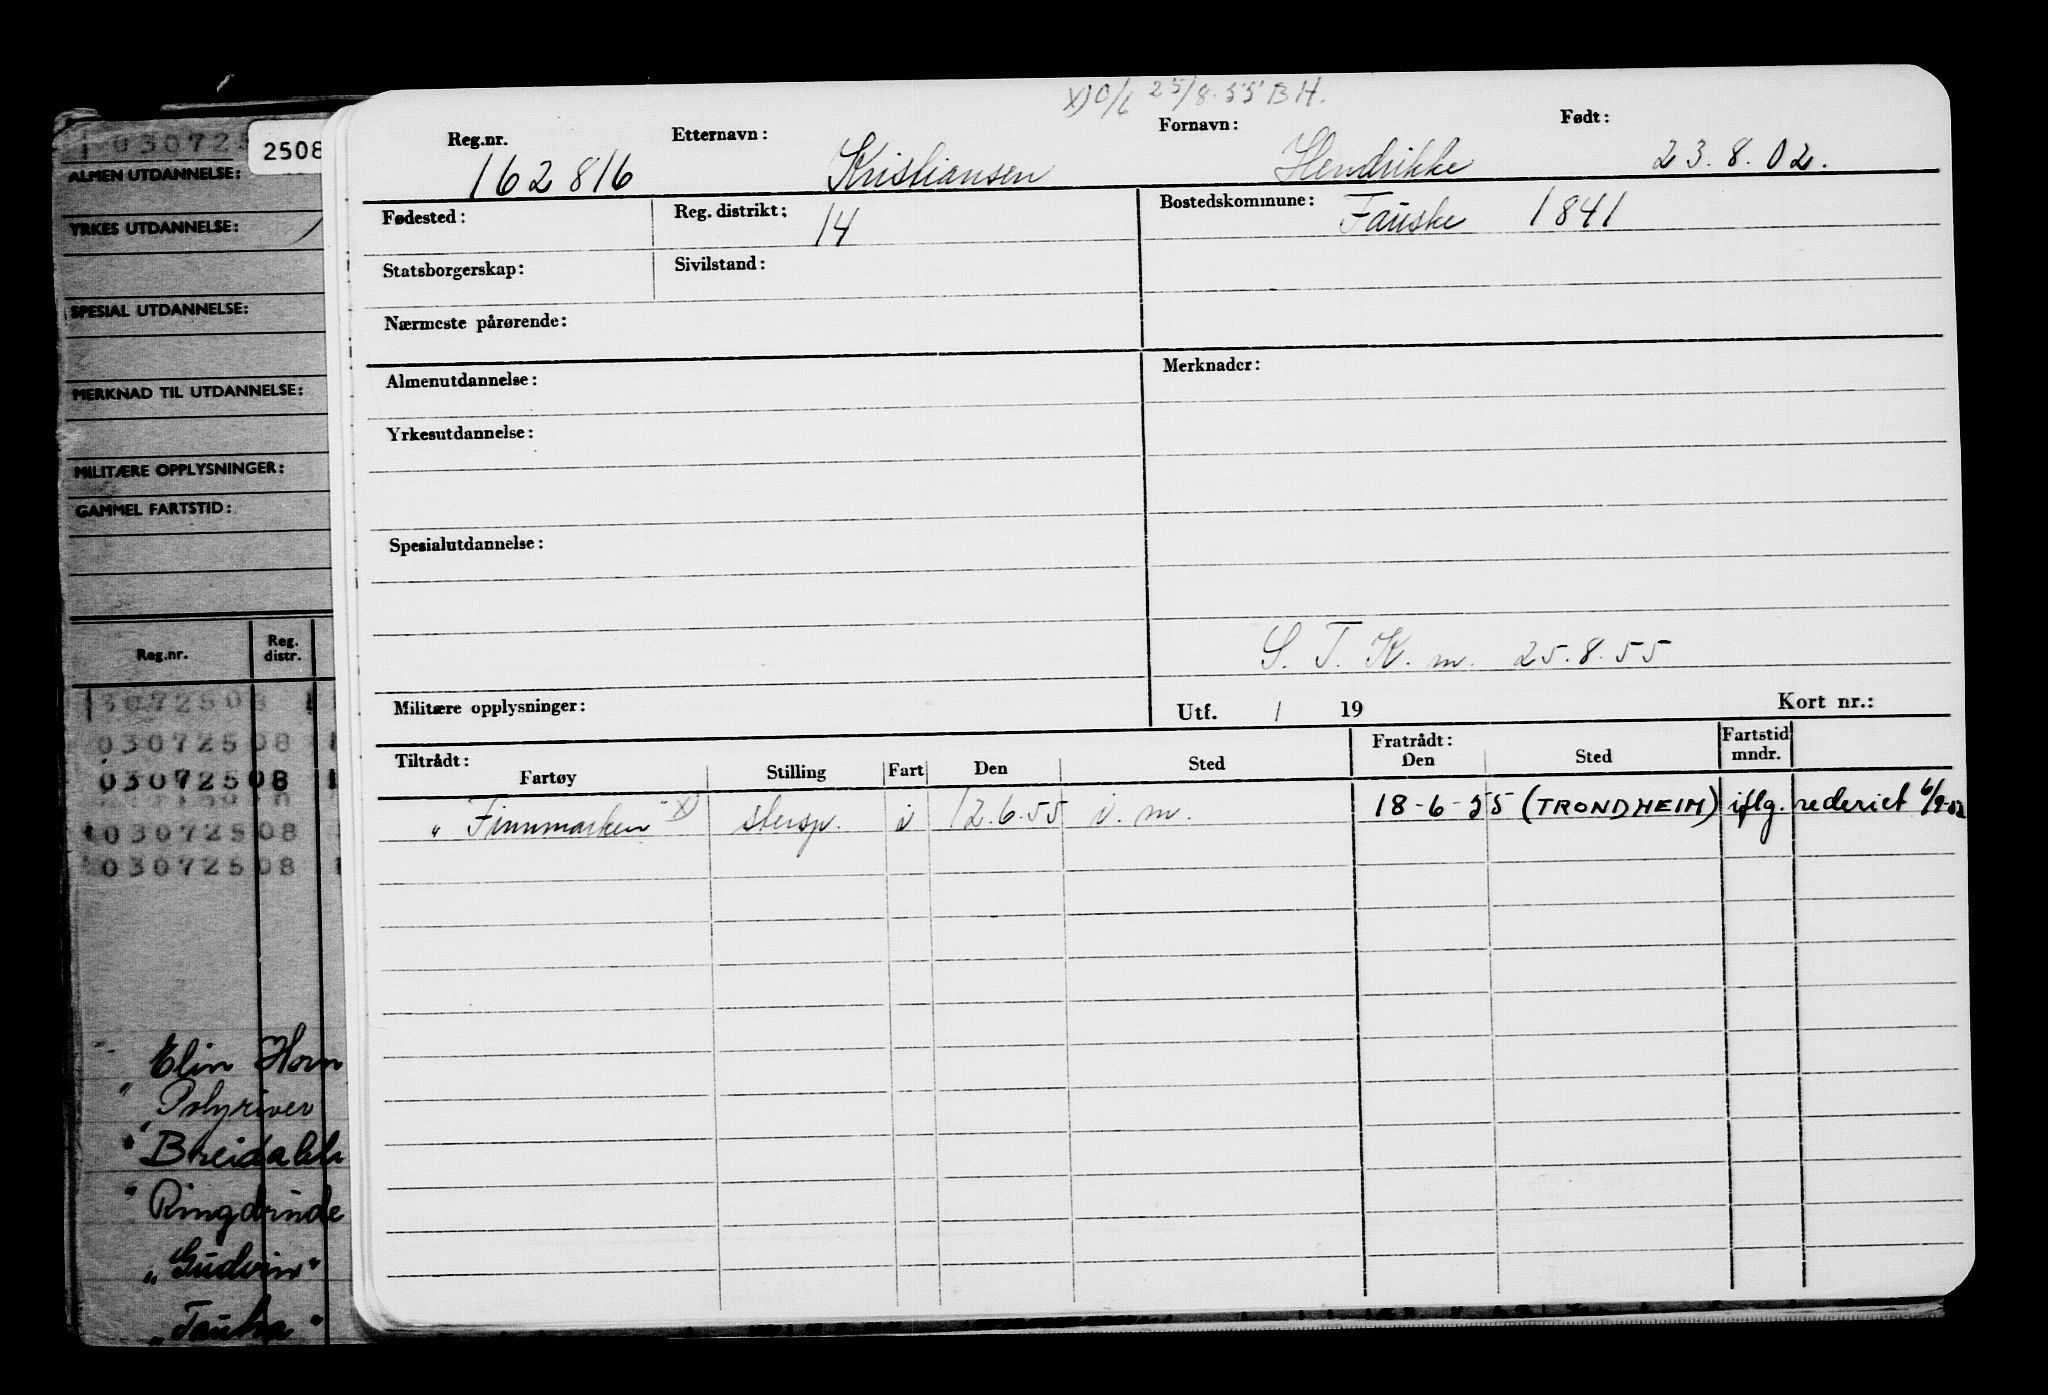 25/8.55 BH.
Reg.nr. Etternavn: Fornavn: Født:
162816 Kristiansen Hendrikke 23.8.02.
Fødested: Reg. distrikt: 14 Bostedskommune: Fauske 1841
Statsborgerskap: Sivilstand:
Nærmeste pårørende:
Almenutdannelse: Merknader:
Yrkesutdannelse:
Spesialutdannelse:
S. T. K. m. 25.8.55
Militære opplysninger: Utf. / 19 Kort nr.:
Tiltrådt: Fratrådt: Fartstid
Fartøy Stilling Fart Den Sted Den Sted mndr.
"Finnmarken" x) stersp. i 12.6.55 i. m. 18-6-55 (TRONDHEIM) iflg. rederiet
030725
2508
ALMEN UTDANNELSE:
YRKES UTDANNELSE:
SPESIAL UTDANNELSE:
MERKNAD TIL UTDANNELSE:
MILITÆRE OPPLYSNINGER:
GAMMEL FARTSTID:
Reg.nr. Reg. distr.
03072508
03072508
03072508
03072508
03072508
Elin Horn
Polyriver
Ringdrude
"Gudvin"